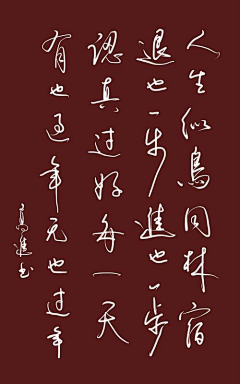 人生似鳥同林宿
退也一步進也一步
認真过好每一天
有也过年无也过年
高進书